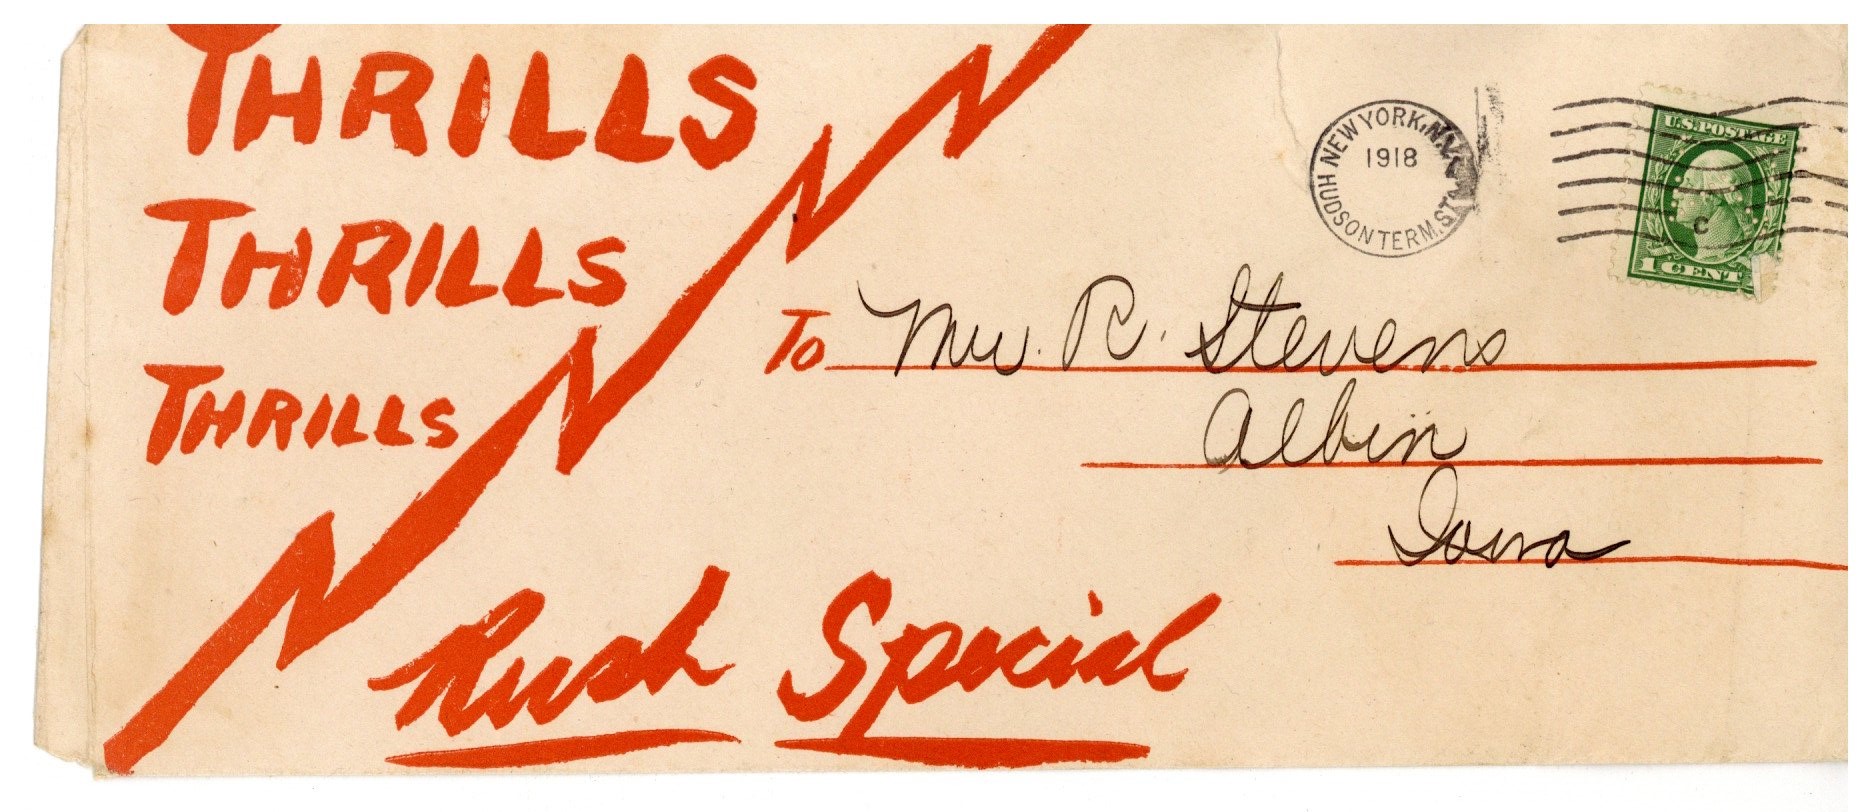 THRILLS
THRILLS
THRILLS
NEW YORK, N.Y.
1918
HUDSON TERM. STA.
U.S. POSTAGE
C
1 CENT
To Mr. R. Stevens
Albin
Iowa
Rush Special